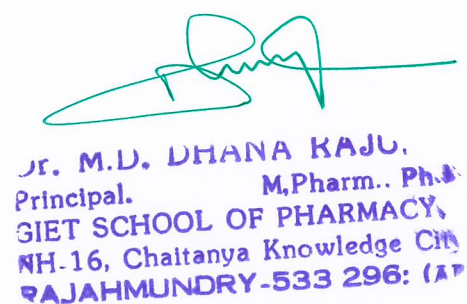 Dr. M.D. DHANA RAJU,
Principal. M,Pharm.. Ph.D
GIET SCHOOL OF PHARMACY,
NH-16, Chaitanya Knowledge City
RAJAHMUNDRY-533 296: (AP